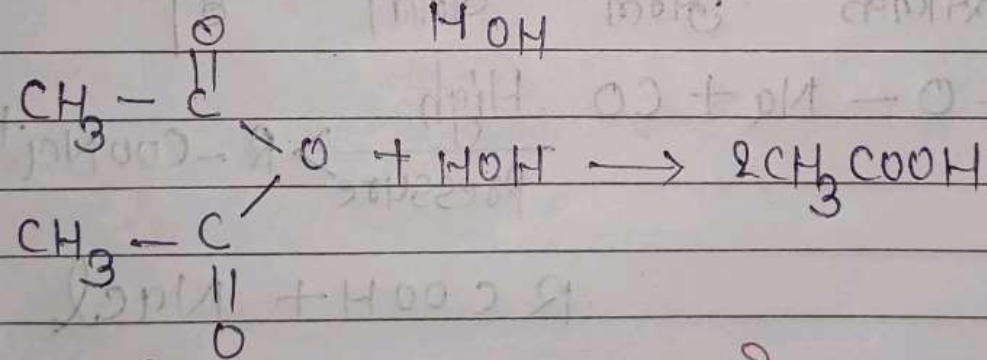 HOH
O
||
CH₃ – C
\ O + HOH ⟶ 2CH₃COOH
/
CH₃ – C
||
O